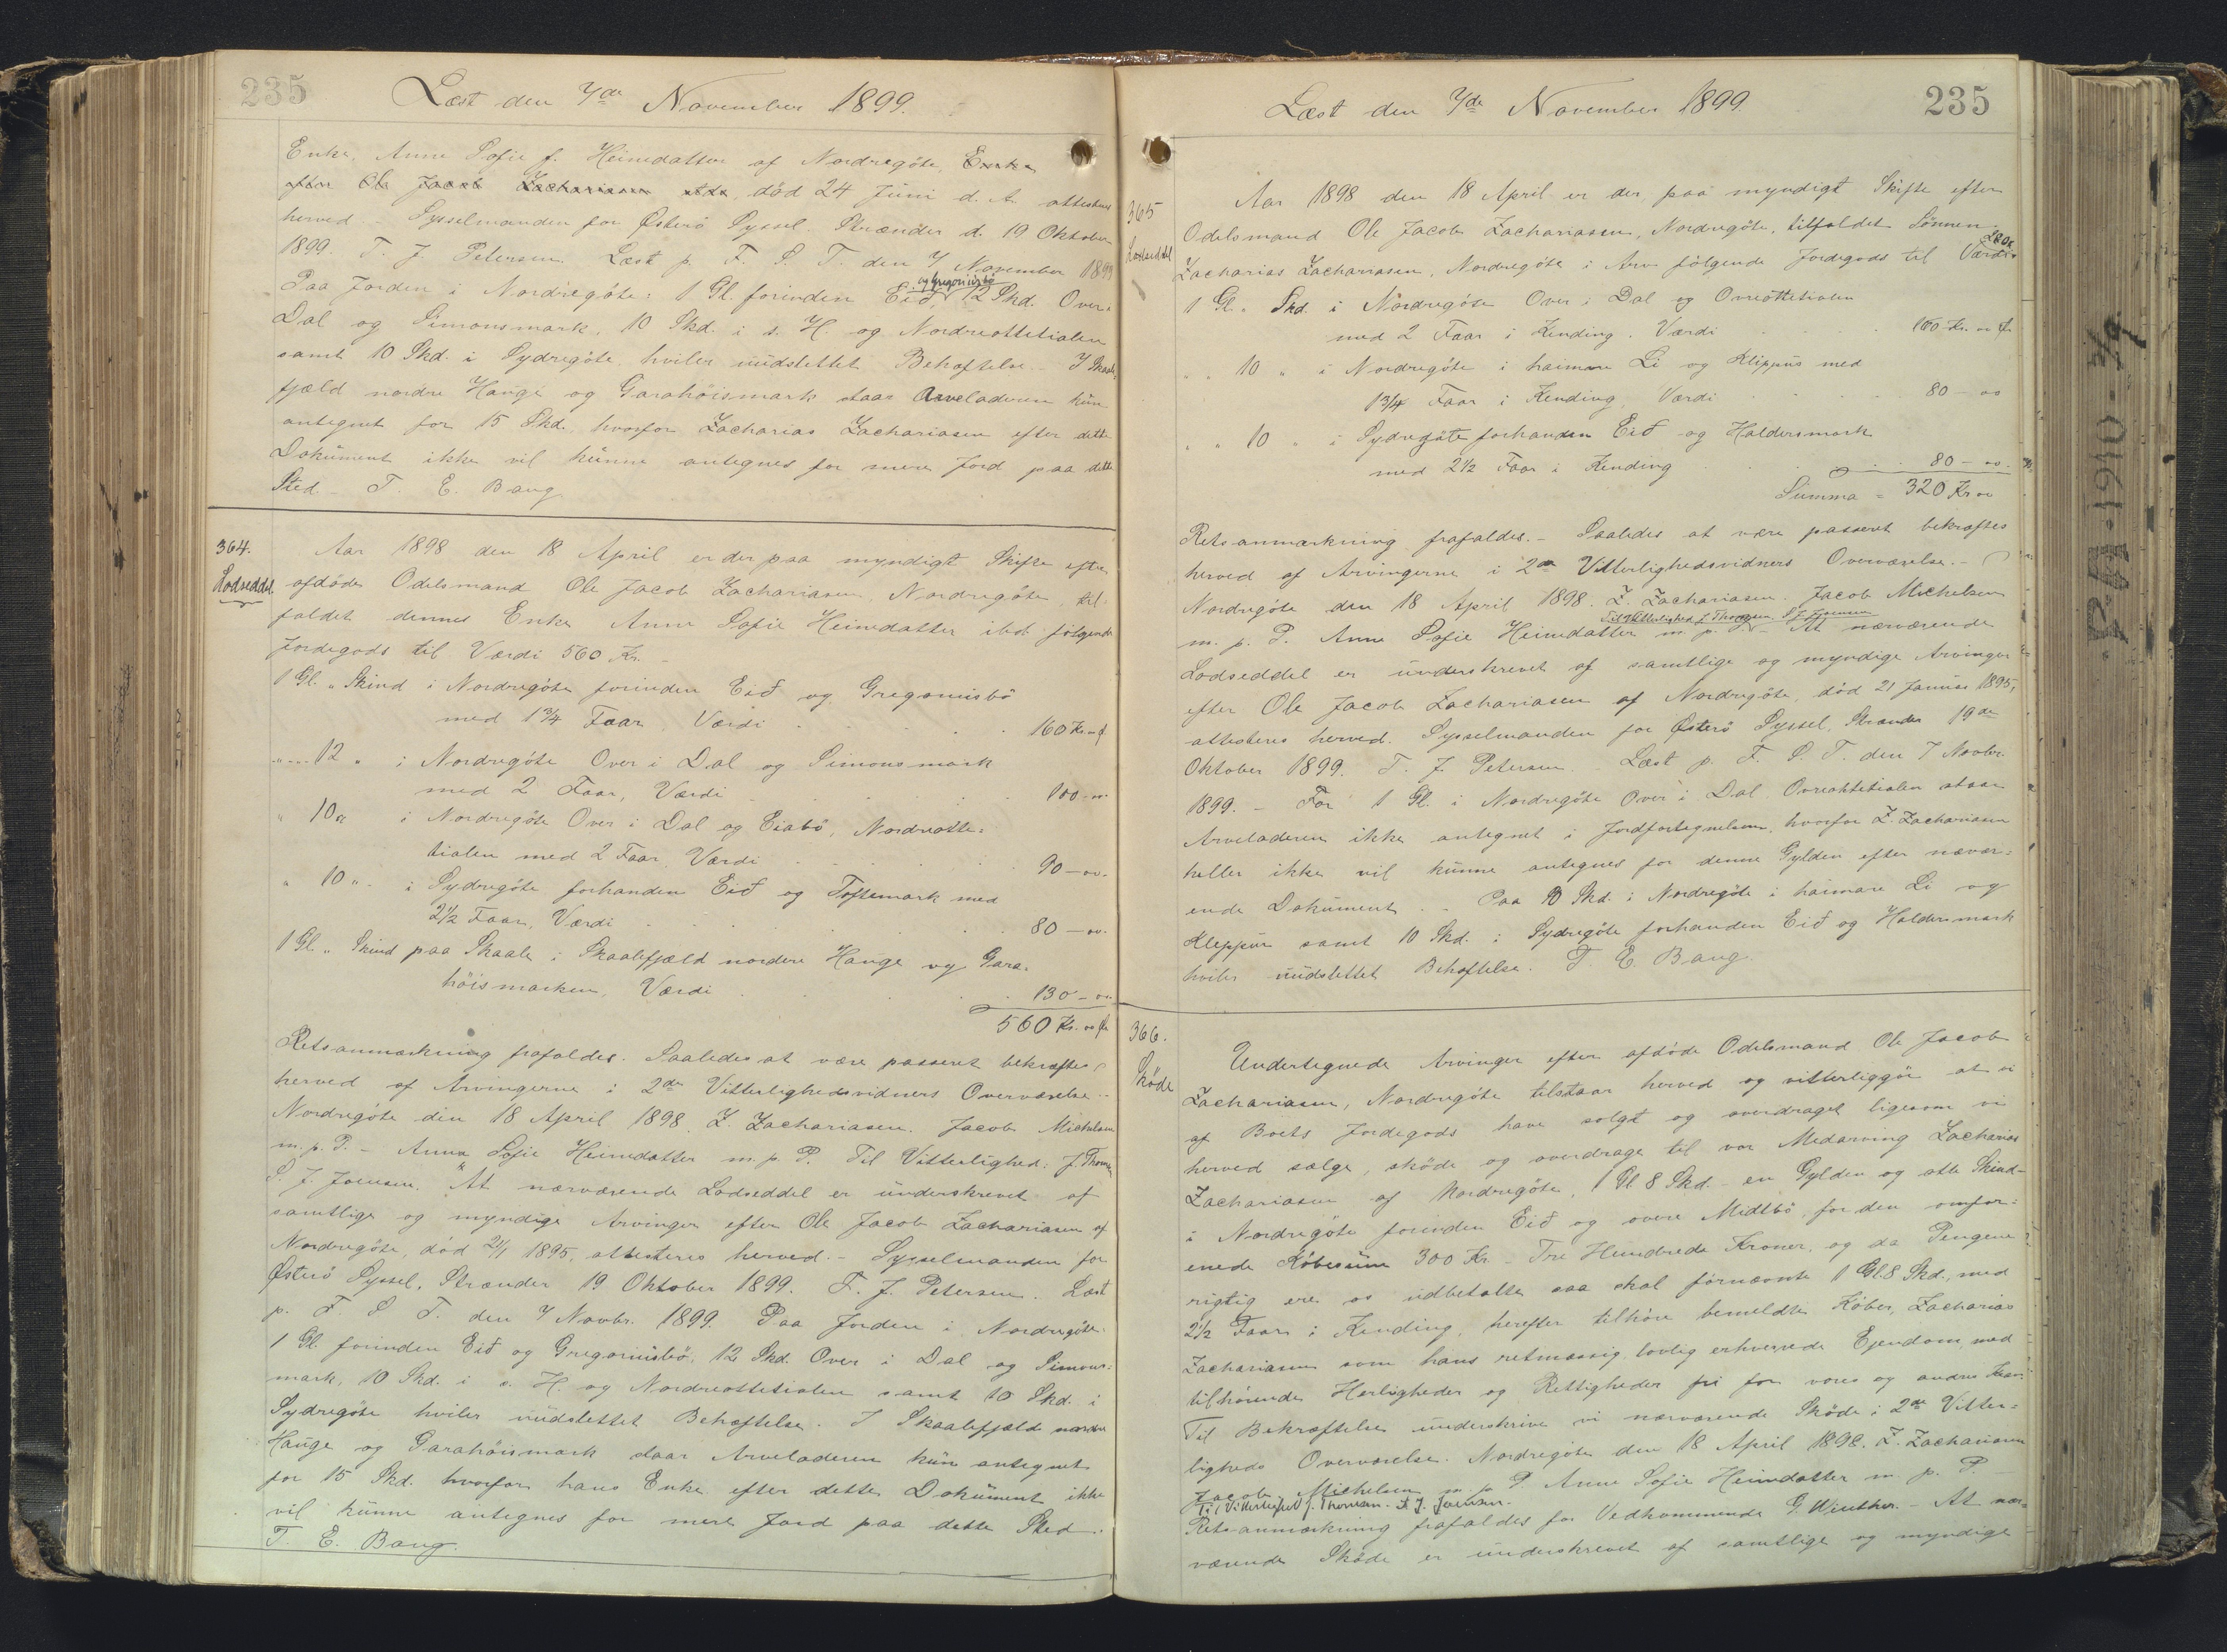 235
Læst den 7de November 1899.
Enke, Anne Sofie f. Heinedatter af Nordregöte, Enke
efter Ole Jacob Zachariasen etde, död 24 Juni d. A. attesteres
herved. Sysselmanden for Österö Syssel. Strænder d. 19 Oktober
1899. T. J. Petersen. Læst p. F. S. T. den 7 November 1899
Paa Jorden i Nordregöte: 1 Gl. forinden Eið og Gregoriusbö 12 Skd. Over i
Dal og Simonsmark, 10 Skd. i s. H. og Nordreottetialen
samt 10 Skd. i Sydregöte hviler uudslettet Behæftelse. I Skaale-
fjæld nordre Hauge og Garahöismark staar Arveladeren kun
antegnet for 15 Skd. hvorfor Zacharias Zachariasen efter dette
Dokument ikke vil kunne antegnes for mere Jord paa dette
Sted. T. E. Bang
364.
Lodseddel
Aar 1898 den 18 April er der paa myndigt Skifte efter
afdöde Odelsmand Ole Jacob Zachariasen, Nordregöte, til-
faldet dennes Enke Anne Sofie Heinedatter ibd. fölgende
Jordegods til Værdi 560 Kr. -
1 Gl. " Skind i Nordregöte forinden Eið og Gregoriusbö
med 1 3/4 Faar, Værdi . . . 160 Kr. " ø
" " 12 " i Nordregöte Over i Dal og Simonsmark
med 2 Faar, Værdi . . . 100 - oo
" 10 " i Nordregöte Over i Dal og Eiabö, Nordreotte-
tialen med 2 Faar, Værdi . . . 90 - oo.
" 10 " i Sydregöte forhanden Eið og Toftemark med
2 1/2 Faar, Værdi . . . 80 - oo.
1 Gl. " Skind paa Skaale i Skaalefjæld nordere Hauge og Gara-
höismarken, Værdi . . . 130 - oo
560 Kr. oo ø
Retsanmærkning frafaldes. Saaledes at være passeret bekræftes
herved af Arvingerne i 2de Vitterlighedsvidners Overværelse. -
Nordregöte den 18 April 1898. Z. Zachariasen. Jacob Michelsen
m. p. P. - Anna Sofie Heinedatter m. p. P. Til Vitterlighed: J. Thomsen
S. J. Joensen. At nærværende Lodseddel er underskrevet af
samtlige og myndige Arvinger efter Ole Jacob Zachariasen af
Nordregöte, död 21/1 1895, attesteres herved. - Sysselmanden for
Österö Syssel, Strænder 19 Oktober 1899. T. J. Petersen. Læst
p. F. S. T. den 7 Novbr. 1899. Paa Jorden i Nordregöte
1 Gl. forinden Eið og Gregoriusbö, 12 Skd. Over i Dal og Simons-
mark, 10 Skd. i s. H. og Nordreottetialen samt 10 Skd. i
Sydregöte hviler uudslettet Behæftelse. I Skaalefjæld nordre
Hauge og Garahöismark staar Arveladeren kun antegnet
for 15 Skd. hvorfor hans Enke efter dette Dokument ikke
vil kunne antegnes for mere Jord paa dette Sted.
T. E. Bang.
Læst den 7de November 1899.
235
365
Lodseddel
Aar 1898 den 18 April er der paa myndigt Skifte efter
Odelsmand Ole Jacob Zachariasen, Nordregöte, tilfaldet Sönnen
Zacharias Zachariasen, Nordregöte i Arv fölgende Jordegods til Værdi
1 Gl. " Skd. i Nordregöte Over i Dal og Ovreöttetialen
med 2 Faar i Kending. Værdi . . . 160 Kr. oo ø
" " 10 " i Nordregöte i haimare Li og Klippus med
1 3/4 Faar i Kending, Værdi . . . 80 - oo
" " 10 " i Sydregöte forhanden Eið og Haldersmark
med 2 1/2 Faar i Kending . . . 80 - oo.
Summa = 320 Kr oo
Retsanmærkning frafaldes. - Saaledes at være passeret bekræftes
herved af Arvingerne i 2de Vitterlighedsvidners Overværelse. -
Nordregöte den 18 April 1898. Z. Zachariasen. Jacob Michelsen
m. p. P. Anne Sofie Heinedatter m. p. P. Til Vitterlighed J Thomsen S J Joensen - At nærværende
Lodseddel er underskrevet af samtlige og myndige Arvinger
efter Ole Jacob Zachariasen af Nordregöte, död 21 Januar 1895,
attesteres herved. Sysselmanden for Österö Syssel, Strænder 19de
Oktober 1899. T. J. Petersen. Læst p. F. S. T. den 7 Novbr.
1899. - For 1 Gl. i Nordregöte Over i Dal Ovreottetialen staar
Arveladeren ikke antegnet i Jordfortegnelsen, hvorfor Z. Zachariasen
heller ikke vil kunne antegnes for denne Gylden efter nærvær-
ende Dokument. - Paa 10 Skd. i Nordregöte i haimare Li og
Kleppur samt 10 Skd. i Sydregöte forhanden Eið og Haldersmark
hviler uudslettet Behæftelse. T. E. Bang.
366.
Sköde
Undertegnede Arvinger efter afdöde Odelsmand Ole Jacob
Zachariasen, Nordregöte tilstaar herved og vitterliggör at vi
af Boets Jordegods have solgt og overdraget ligesom vi
herved sælge, sköde og overdrage til vor Medarving Zacharias
Zachariasen af Nordregöte, 1 Gl 8 Skd - en Gylden og otte Skind -
i Nordregöte forinden Eið og övere Midtbö, for den omfor-
enede Köbesum 300 Kr - Tre Hundrede Kroner, og da Pengene
rigtig ere os udbetalte saa skal förnævnte 1 Gl. 8 Skd., med
2 1/2 Faar i Kending, herefter tilhöre bemeldte Köber, Zacharias
Zachariasen som hans retmæssig lovlig erhvervede Ejendom, med
tilhörende Herligheder og Rettigheder fri for vores og andres Krav.
Til Bekræftelse underskrive vi nærværende Sköde i 2de Vitter-
ligheds Overværelse. Nordregöte den 18 April 1898. Z. Zachariasen
Jacob Michelsen m. p. P. Anne Sofie Heinedatter m. p. P. -
Til Vitterlighed J. Thomsen. S. J. Joensen.
Retsanmærkning frafaldes for Vedkommende G. Winther. At nær-
værende Sköde er underskrevet af samtlige og myndige